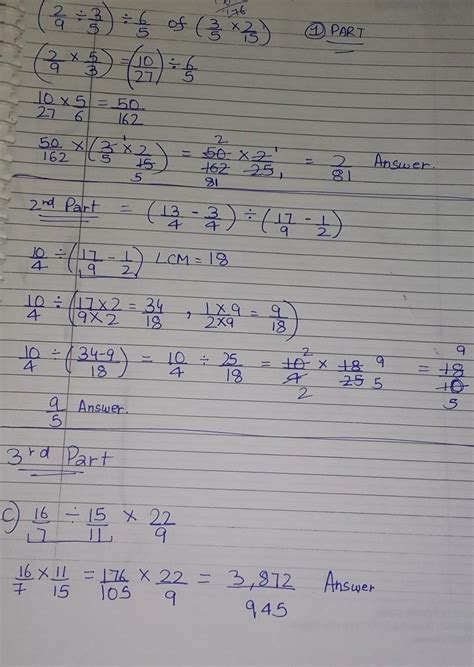 (2/9 ÷ 3/5) ÷ 6/5 of (3/5 × 2/15) ① PART
(2/9 × 5/3) = (10/27) ÷ 6/5
10/27 × 5/6 = 50/162
50/162 × (3/5 × 2/15 1 5) = 50/162 2 81 × 2/25 1 1 = 2/81 Answer.
2nd Part = (13/4 - 3/4) ÷ (17/9 - 1/2)
10/4 ÷ (17/9 - 1/2) LCM = 18
10/4 ÷ (17×2/9×2 = 34/18 , 1×9/2×9 = 9/18)
10/4 ÷ (34-9/18) = 10/4 ÷ 25/18 = 10/4 2 2 × 18/25 9 5 = 18/10 9 5
9/5 Answer.
3rd Part
c) 16/7 ÷ 15/11 × 22/9
16/7 × 11/15 = 176/105 × 22/9 = 3,872/945 Answer